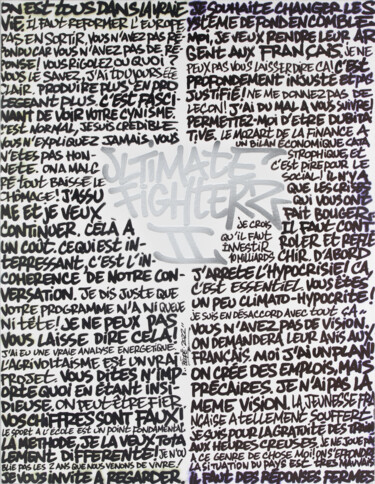 ON EST TOUS DANS LA VRAIE
VIE. IL FAUT REFORMER L'EUROPE
PAS EN SORTIR. VOUS N'AVEZ PAS RÉ-
PONDU CAR VOUS N'AVEZ PAS DE RÉ-
PONSE! VOUS RIGOLEZ OU QUOI?
VOUS LE SAVEZ, J'AI TOUJOURS ÉTÉ
CLAIR. PRODUIRE PLUS EN PRO-
TÉGEANT PLUS. C'EST FASCI-
NANT DE VOIR VOTRE CYNISME.
C'EST NORMAL, JE SUIS CRÉDIBLE.
VOUS N'EXPLIQUEZ JAMAIS, VOUS
N'ÊTES PAS HON-
NÊTE. ON A MALG-
RÉ TOUT BAISSÉ LE
CHÔMAGE! J'ASSU
ME ET JE VEUX
CONTINUER. CELÀ A
UN COÛT. CE QUI EST IN-
TERRESSANT, C'EST L'IN-
COHERENCE DE NOTRE CON-
VERSATION. JE DIS JUSTE QUE
VOTRE PROGRAMME N'A NI QUEUE
NI TÊTE! JE NE PEUX PAS
VOUS LAISSE DIRE CELA!
J'AI EU UNE VRAIE ANALYSE ENERGETIQUE.
L'AGRIVOLTAISME EST UN VRAI
PROJET. VOUS DITES N'IMP-
ORTE QUOI EN ÉTANT INSI-
DIEUSE. ON PEUT ÊTRE FIER.
VOS CHIFFRES SONT FAUX!
LE SPORT À L'ECOLE EST UN POINT FONDAMENTAL
LA METHODE, JE LA VEUX TOTA
LEMENT DIFFÉRENTE! JE N'OU
BLIE PAS LES 2 ANS QUE NOUS VENONS DE VIVRE!
JE VOUS INVITE A REGARDER.
ULTIMATE
FIGHTERZ
II
JE SOUHAITE CHANGER LE S
YSTÈME DE FOND EN COMBLE
MOI, JE VEUX RENDRE LEUR AR
GENT AUX FRANÇAIS. JE NE
PEUX PAS VOUS LAISSER DIRE ÇA! C'EST
PROFONDEMENT INJUSTE ET PAS
JUSTIFIÉ! NE ME DONNEZ PAS DE
LEÇON! J'AI DU MAL A VOUS SUIVRE!
PERMETTEZ-MOI D'ETRE DUBITA
TIVE. LE MOZART DE LA FINANCE A
UN BILAN ÉCONOMIQUE CATA
STROPHIQUE, ET
C'EST PIRE POUR LE
SOCIAL! IL N'Y A
QUE LES CRISES
QUI VOUS ONT
FAIT BOUGER.
JE CROIS
QU'IL FAUT
INVESTIR
10 MILLIARDS
IL FAUT CONT
ROLER ET RÉFLÉ
CHIR. D'ABORD
J'ARRETE L'HYPOCRISIE! ÇA
C'EST ESSENTIEL. VOUS ÊTES
UN PEU CLIMATO-HYPOCRITE!
JE SUIS EN DÉSACCORD AVEC TOUT ÇA
VOUS N'AVEZ PAS DE VISION.
ON DEMANDERA LEUR AVIS AUX
FRANÇAIS. MOI J'AI UN PLAN!
ON CRÉE DES EMPLOIS, MAIS
PRÉCAIRES. JE N'AI PAS LA
MEME VISION. LA JEUNESSE FRA
NÇAISE A TELLEMENT SOUFFERT.
JE SUIS POUR LA GRATUITÉ DES TRAINS
AUX HEURES CREUSES. JE NE JOUE PAS
CE GENRE DE CHOSE MOI! ON S'EFFONDRE
LA SITUATION DU PAYS EST TRÈS MAUVAISE
IL FAUT DES RÉPONSES FERMES